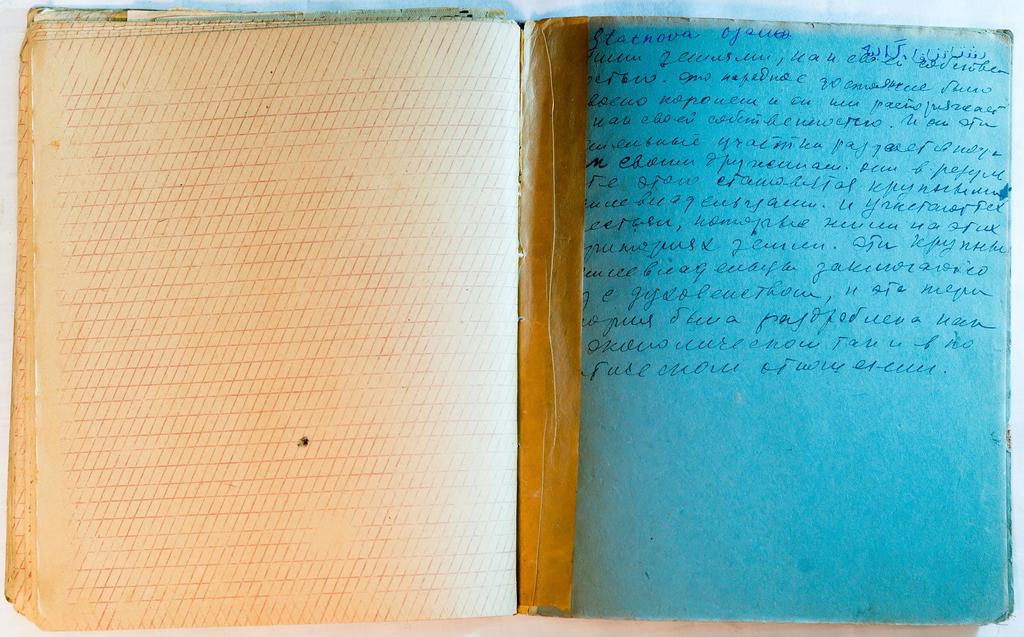 Stasnova
шими землями, как своей собствен
остью. это народное достояние было
воено королем и он им распоряжает
как своей собственностью. И он эти
ительные участки раздает в полу
м своим дружинам. они в резул
те этого становятся крупными
млевладельцами. и угнетаются
естьян, которые жили на этих
рриториях земли. эти крупны
млевладельцы заключают со
з с духовенством, и эта терри
ория была раздроблена как
экономическом так и в по
тическом отношении.